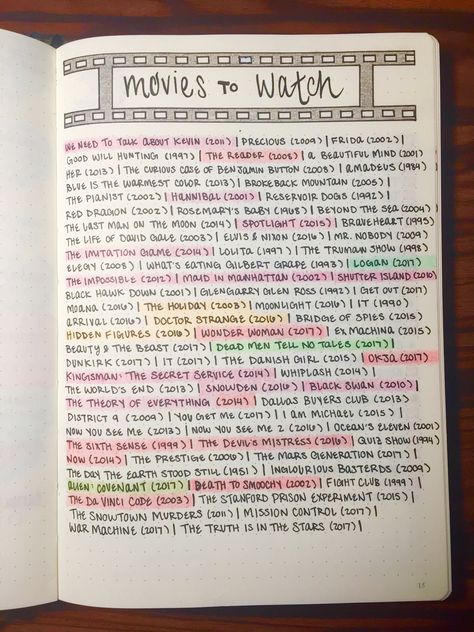 movies to watch
WE NEED TO TALK ABOUT KEVIN (2011) | PRECIOUS (2009) | FRIDA (2002) |
GOOD WILL HUNTING (1997) | THE READER (2008) | A BEAUTIFUL MIND (2001)
HER (2013) | THE CURIOUS CASE OF BENJAMIN BUTTON (2008) | AMADEUS (1984)
BLUE IS THE WARMEST COLOR (2013) | BROKEBACK MOUNTAIN (2005) |
THE PIANIST (2002) | HANNIBAL (2001) | RESERVOIR DOGS (1992) |
RED DRAGON (2002) | ROSEMARY'S BABY (1968) | BEYOND THE SEA (2004) |
THE LAST MAN ON THE MOON (2014) | SPOTLIGHT (2015) | BRAVEHEART (1995)
THE LIFE OF DAVID GALE (2003) | ELVIS & NIXON (2016) | MR. NOBODY (2009)
THE IMITATION GAME (2014) | LOLITA (1997) | THE TRUMAN SHOW (1998)
ELEGY (2008) | WHAT'S EATING GILBERT GRAPE (1993) | LOGAN (2017)
THE IMPOSSIBLE (2012) | MAID IN MANHATTAN (2002) | SHUTTER ISLAND (2010)
BLACK HAWK DOWN (2001) | GLENGARRY GLEN ROSS (1992) | GET OUT (2017)
MOANA (2016) | THE HOLIDAY (2003) | MOONLIGHT (2016) | IT (1990)
ARRIVAL (2016) | DOCTOR STRANGE (2016) | BRIDGE OF SPIES (2015)
HIDDEN FIGURES (2016) | WONDER WOMAN (2017) | EX MACHINA (2015)
BEAUTY & THE BEAST (2017) | DEAD MEN TELL NO TALES (2017) |
DUNKIRK (2017) | IT (2017) | THE DANISH GIRL (2015) | OKJA (2017)
KINGSMAN: THE SECRET SERVICE (2014) | WHIPLASH (2014) |
THE WORLD'S END (2013) | SNOWDEN (2016) | BLACK SWAN (2010) |
THE THEORY OF EVERYTHING (2014) | DALLAS BUYERS CLUB (2013)
DISTRICT 9 (2009) | YOU GET ME (2017) | I AM MICHAEL (2015) |
NOW YOU SEE ME (2013) | NOW YOU SEE ME 2 (2016) | OCEAN'S ELEVEN (2001)
THE SIXTH SENSE (1999) | THE DEVIL'S MISTRESS (2016) | QUIZ SHOW (1994)
NOW (2014) | THE PRESTIGE (2006) | THE MARS GENERATION (2017) |
THE DAY THE EARTH STOOD STILL (1951) | INGLOURIOUS BASTERDS (2009)
ALIEN: COVENANT (2017) | DEATH TO SMOOCHY (2002) | FIGHT CLUB (1999) |
THE DA VINCI CODE (2003) | THE STANFORD PRISON EXPERIMENT (2015) |
THE SNOWTOWN MURDERS (2011) | MISSION CONTROL (2017) |
WAR MACHINE (2017) | THE TRUTH IS IN THE STARS (2017) |